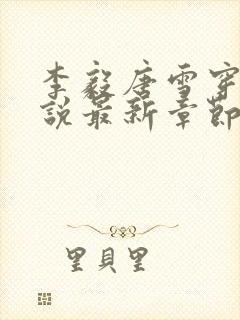 李毅唐雪穿
説最新章節
里貝里